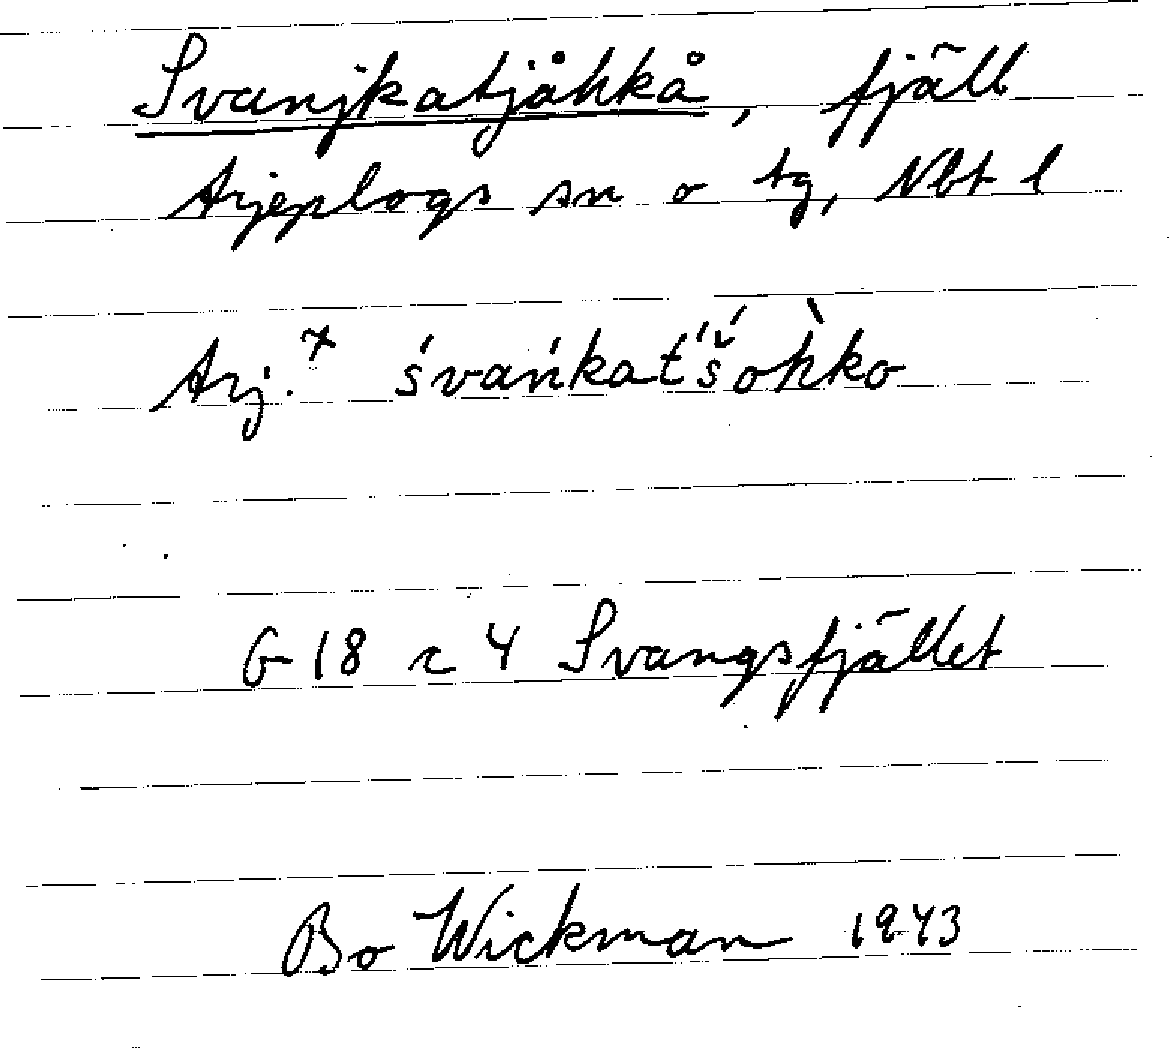 Svanjkatjåhkå, fjäll
Arjeplogs sn o tg, Nbt l
Arj.× śvańkat́š́òhko
G 18 c 4 Svangsfjället
Bo Wickman 1943